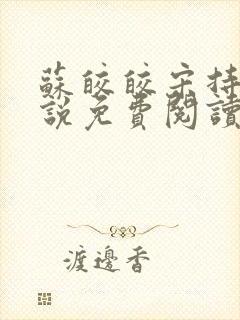 蘇皎皎宋持
說免費閱讀
渡邊香